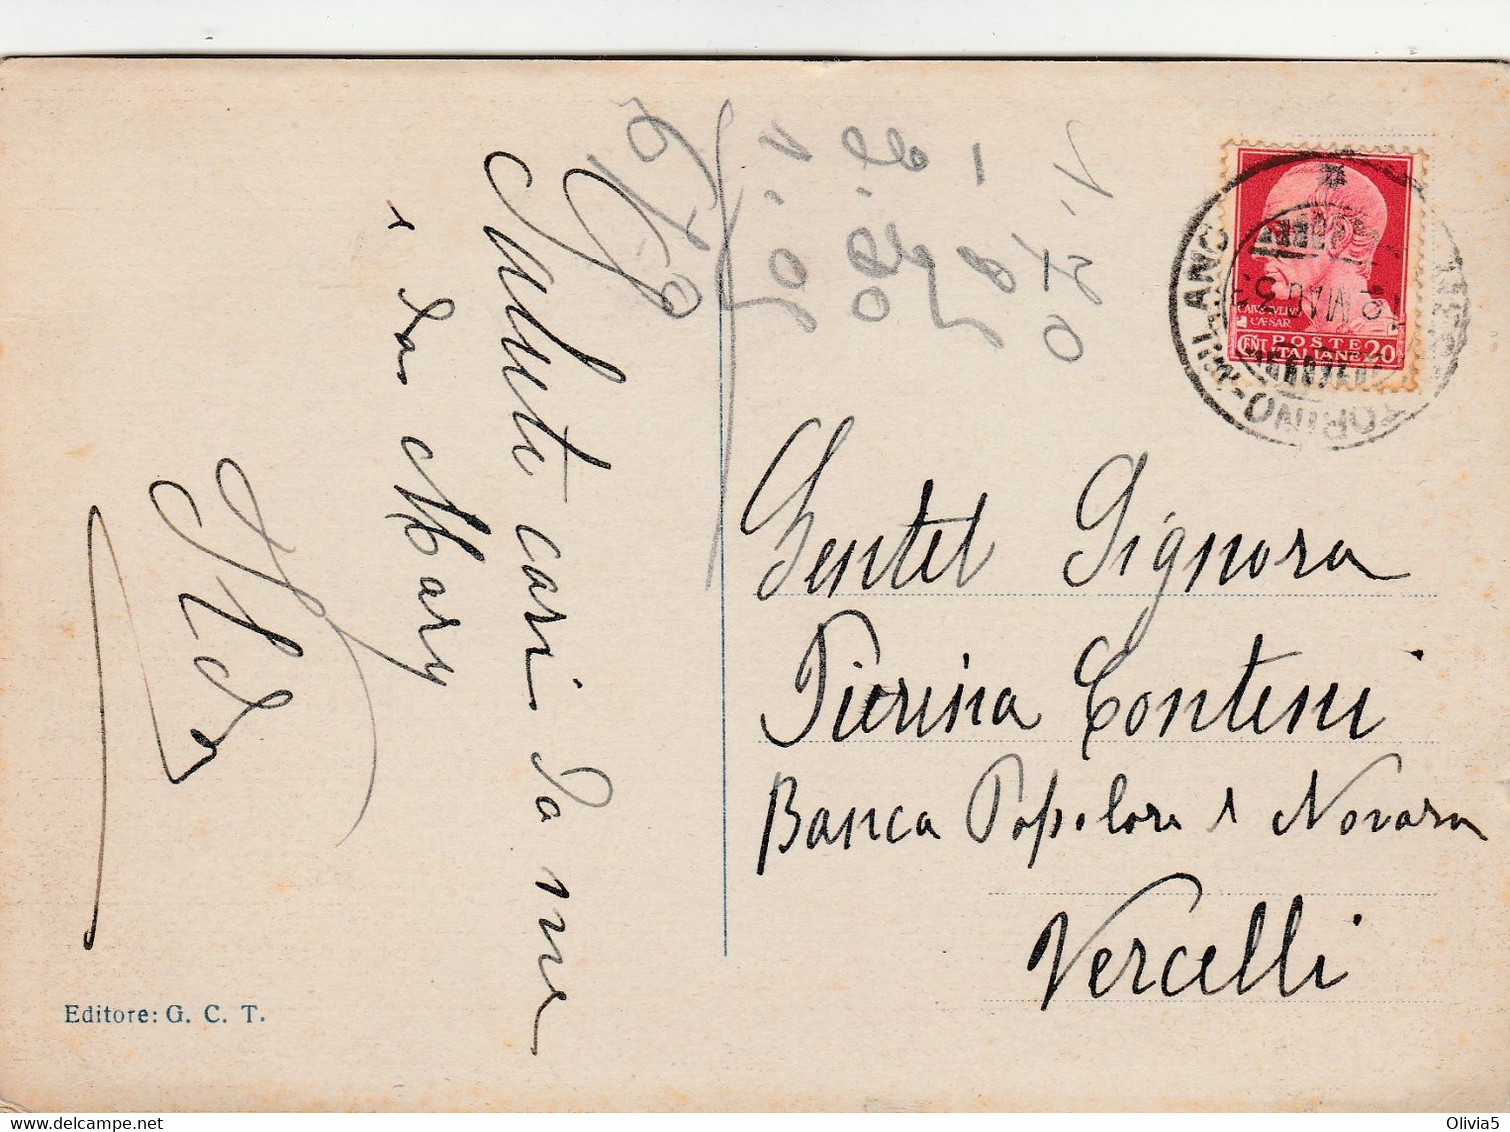 Saluti cari da me
e da Mary
Gentil Signora
Pierina Conteni
Banca Popolare di Novara
Vercelli
Editore: G. C. T.
CAIVS IVLIVS
CÆSAR
CENT POSTE 20
ITALIANE
MILANO
TORINO
MAG
Olivia5